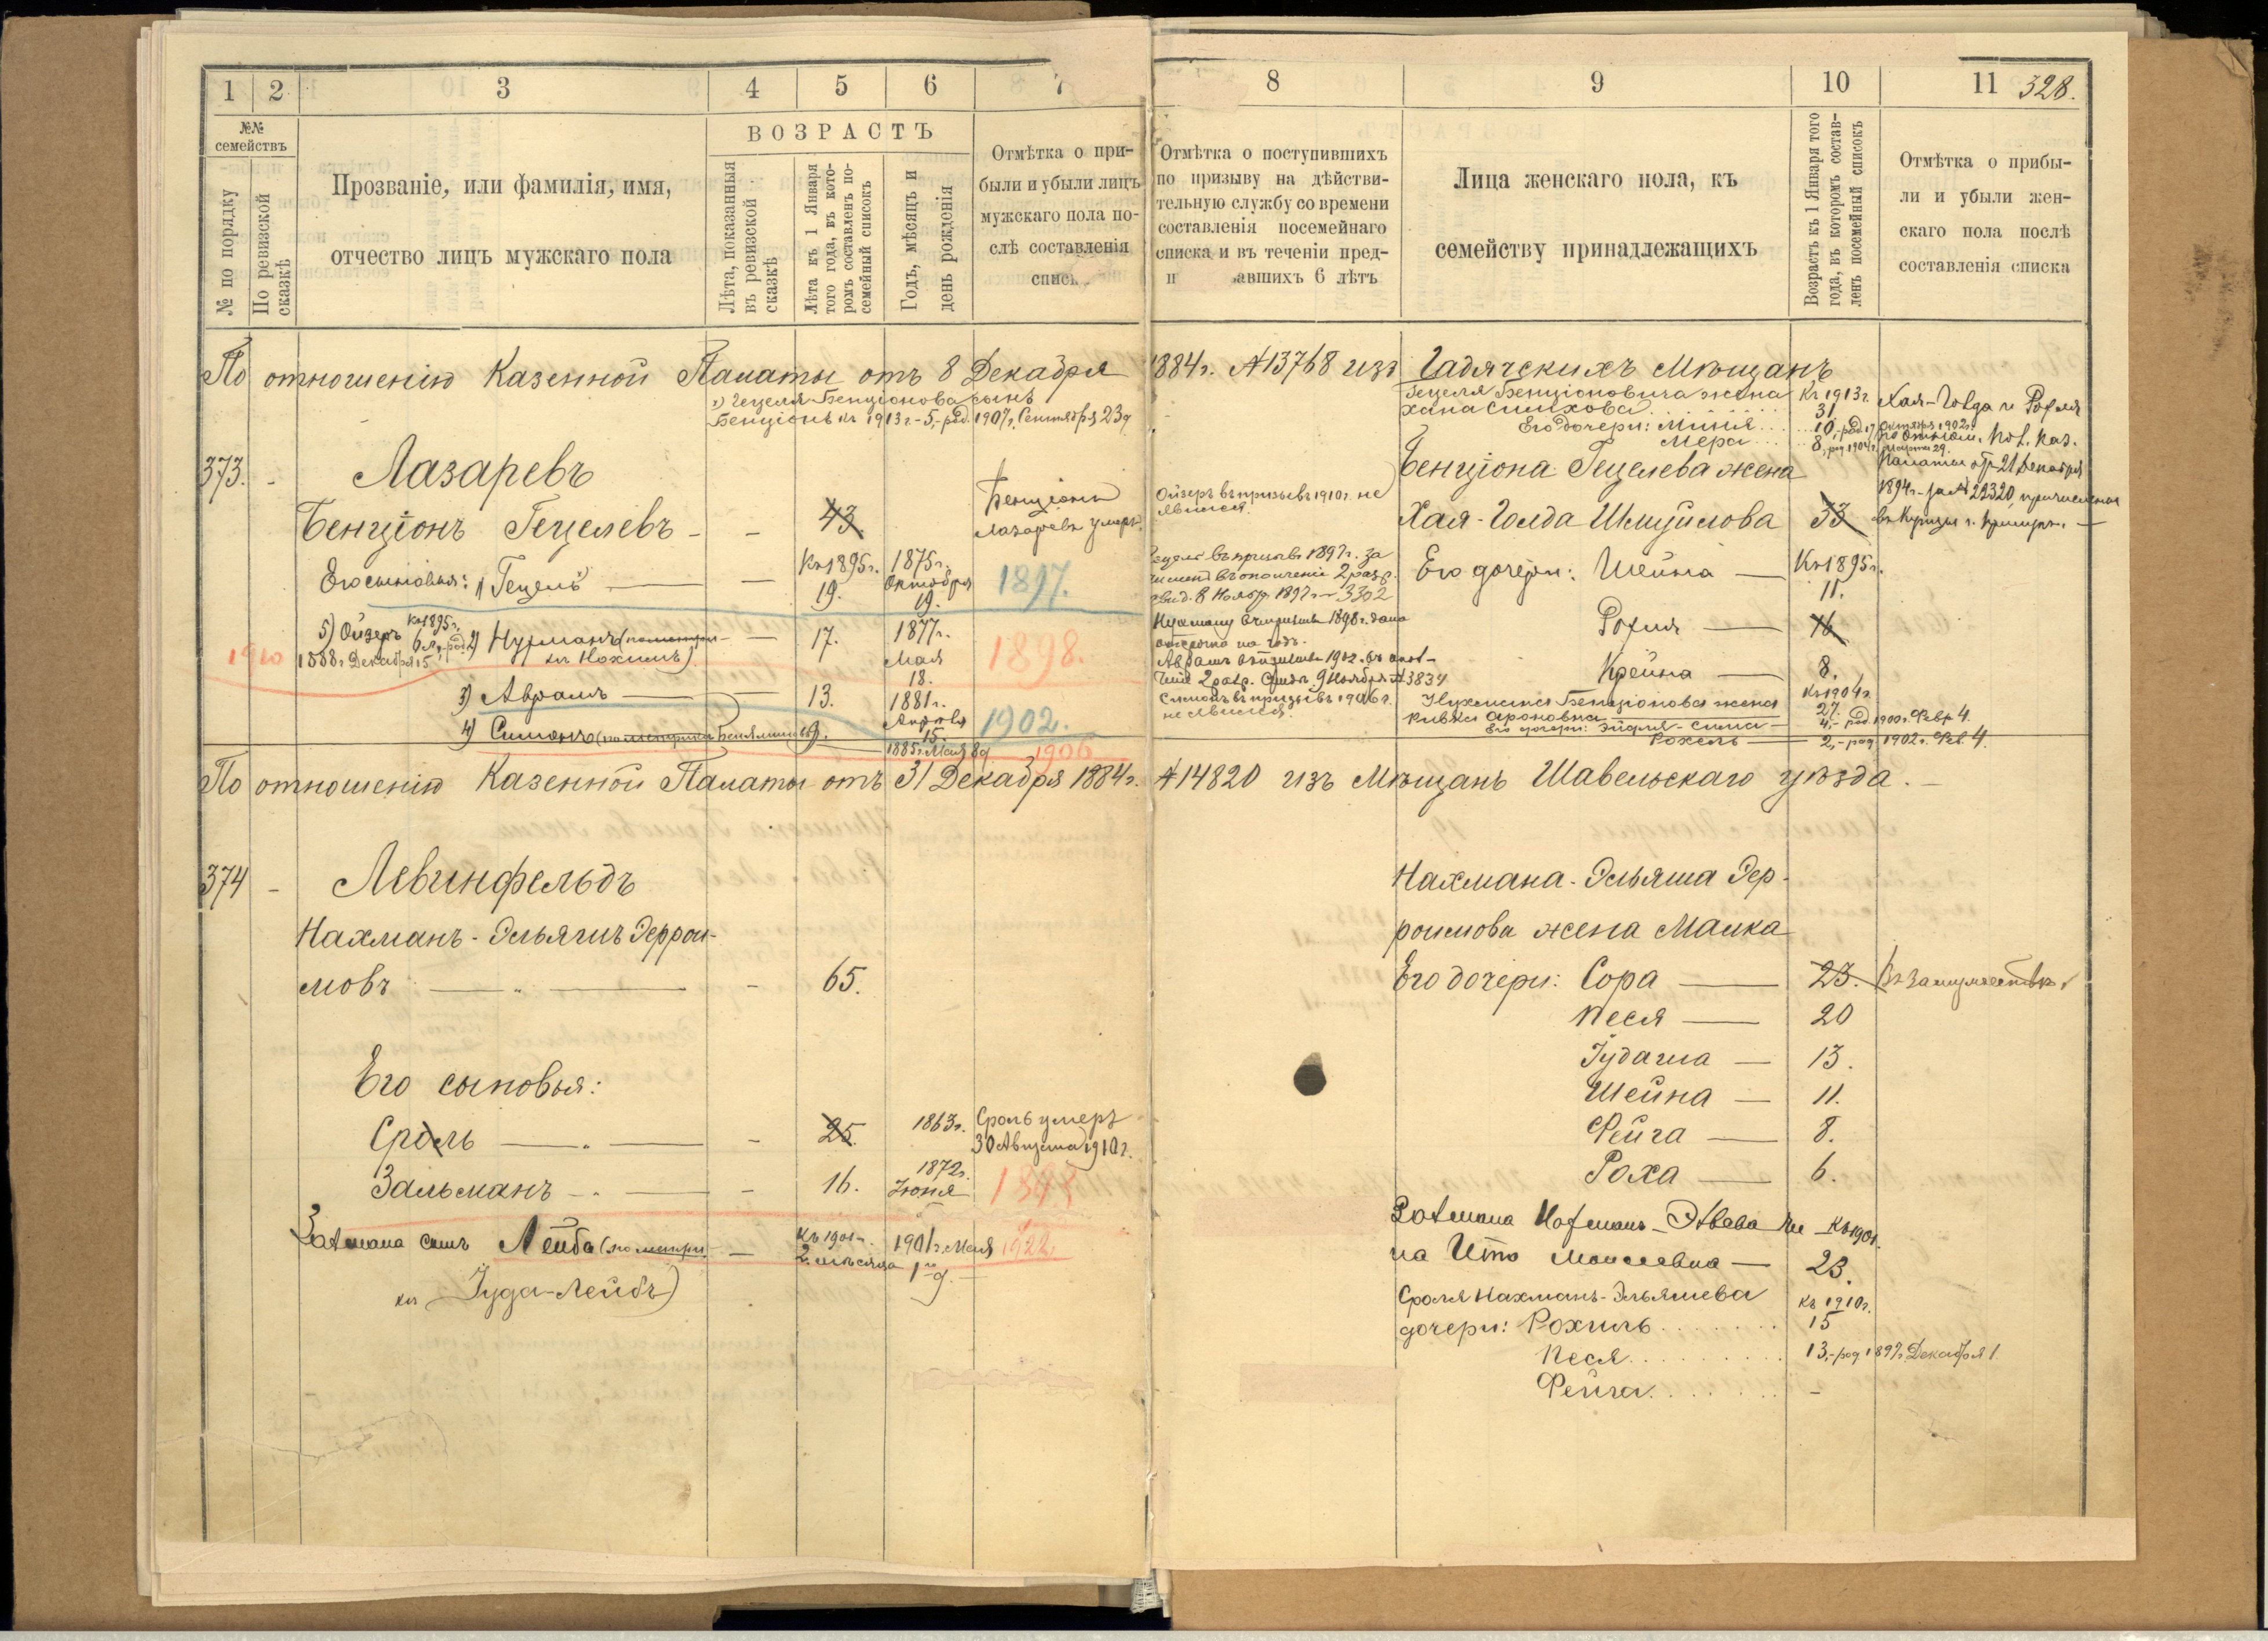 1 2 3 4 5 6 7
№№ семействъ
№ по порядку
По ревизской сказкѣ
Прозваніе, или фамилія, имя,
отчество лицъ мужскаго пола
ВОЗРАСТЪ
Лѣта, показанныя
въ ревизской
сказкѣ
Лѣта къ 1 Января
того года, въ кото-
ромъ составленъ по-
семейный списокъ
Годъ, мѣсяцъ и
день рожденія
Отмѣтка о при-
были и убыли лицъ
мужскаго пола по-
слѣ составленія
списк
8 9 10 11 328.
Отмѣтка о поступившихъ
по призыву на дѣйстви-
тельную службу со времени
составленія посемейнаго
списка и въ теченіи пред-
авшихъ 6 лѣтъ
Лица женскаго пола, къ
семейству принадлежащихъ
Возрастъ къ 1 Января того
года, въ которомъ состав-
ленъ посемейный списокъ
Отмѣтка о прибы-
ли и убыли жен-
скаго пола послѣ
составленія списка
По отношенію Казенной Палаты отъ 8 Декабря 1884г. №13768 изъ Гадячскихъ Мѣщанъ
1) Гецеля Бенціонова сынъ
Бенціонъ къ 1913г. - 5, - род. 1907г. Сентября 23д
373. - Лазаревъ
Бенціонъ Гецелевъ - - 43
Бенціонъ
Лазаревъ умеръ.
Его сыновья: 1) Гецель — Къ 1895г. 19. 1875г. Октября 19. 1897.
5) Ойзеръ къ 1895г. 6 л., род.
1888г. Декабря 15
1910
2) Нухманъ (по метри-
кѣ Нохимъ) — 17. 1877г. Мая 18. 1898.
3) Авраамъ — 13. 1881г. Апрѣля 15. 1902.
4) Симонъ (по метрикѣ Беньяминъ) 9. 1885г. Мая 8д 1906
Ойзеръ въ призывъ 1910г. не
явился.
Гецель въ призывъ 1897г. за
численъ въ ополченіе 2 разр.
свид. 8 Ноябр. 1897г. - 3302
Нухману въ призывъ 1898г. дана
отсрочка на годъ.
Авраамъ въ призывъ 1902г. въ опол-
ченіе 2 разр. Свид. 9 Ноября № 3834
Симонъ въ призывъ 1906г.
не явился.
Гецеля Бенціоновича жена
Хана Симхова Къ 1913г. 31
Его дочери: Миня 10, - род. 17 Октября 1902г.
Мера 8, род. 1904г. Марта 29.
Бенціона Гецелева жена
Хая-Голда Шмуйлова 33
Хая-Голда и Рохля
по отнош. Каз.
Палаты отъ 21 Декабря
1894г. за № 22320, причислены
въ купцы г.
Его дочери: Шейна — Къ 1895г. 11.
Рохля — 16
Крейна — 8.
Нухмана Бенціонова жена
Ривка Ароновна Къ 1904г. 27.
Его дочери: Эйдля-Сима — 4, - род. 1900г. Февр. 4.
Рохель — 2, - род. 1902г. Фев. 4.
По отношенію Казенной Палаты отъ 31 Декабря 1884г. №14820 изъ Мѣщанъ Шавельскаго уѣзда. -
374 - Левинфельдъ
Нахманъ-Эльяшъ Геррои-
мовъ — - 65.
Его сыновья:
Сроль — - 25. 1863г. Сроль умеръ
30 Августа 1910г.
Зальманъ — - 16. 1872г. Іюня 1898
Залмана сынъ Лейба (по метри-
кѣ Іуда-Лейбъ)
Къ 1901г. 2 мѣсяца 1901г. Мая 1го д. 1922
Нахмана-Эльяша Гер-
роимова жена Малка
Его дочери: Сора — 23. Въ замужествѣ.
Песя — 20
Гудаша — 13.
Шейна — 11.
Фейга — 8.
Роха — 6.
Залмана Нахманъ-Эльева же
на Ита Моисеевна — Къ 1901. 23.
Сроля Нахманъ-Эльяшева
дочери: Рохиль къ 1910г. 15
Песя 13, - род. 1897г. Декабря 1.
Фейга -